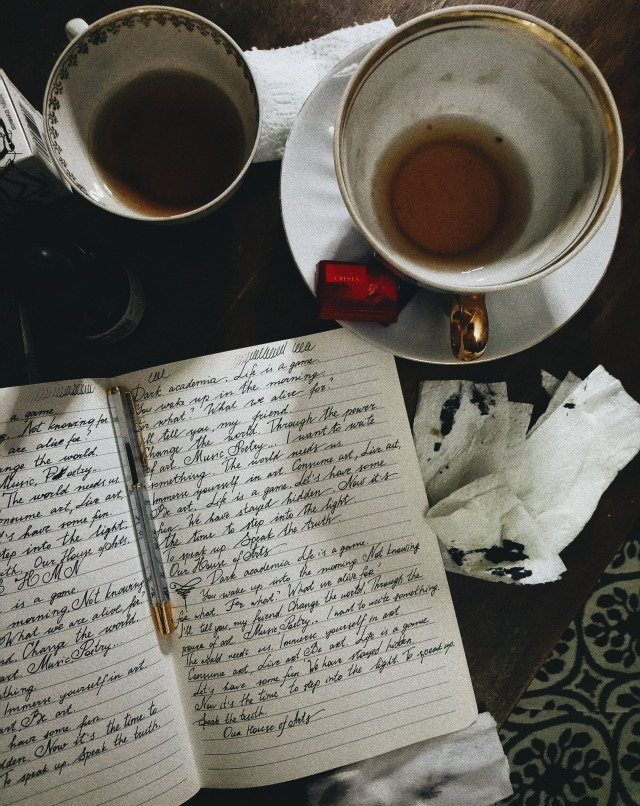 CRISTA
a game.
Not knowing for
are alive for?
change the world.
Music, Poetry...
The world needs us.
consume art, Live art,
let's have some fun.
step into the light.
truth. Our House of Arts.
H M N
is a game.
morning Not knowing
What we are alive for?
Change the world.
art. Music Poetry...
thing.
Immerse yourself in art
art Be art.
have some fun.
hidden. Now it's the time to
To speak up. Speak the truth.
Dark academia. Life is a game.
You wake up in the morning.
For what? What we alive for?
I'll tell you, my friend.
Change the world. Through the power
of art. Music Poetry... I want to write
something. The world needs us.
Immerse yourself in art Consume art, Live art,
Be art. Life is a game. Let's have some
fun. We have stayed hidden. Now it's
the time to step into the light.
To speak up. Speak the truth.
Our House of Arts
Dark academia Life is a game.
You wake up into the morning. Not knowing
for what. For what? What we alive for?
I'll tell you, my friend Change the world. Through the
power of art. Music Poetry... I want to write something.
The world needs us. Immerse yourself in art
Consume art, Live art Be art. Life is a game
Let's have some fun. We have stayed hidden.
Now it's the time. to step into the light. To speak up.
Speak the truth.
Our House of Arts